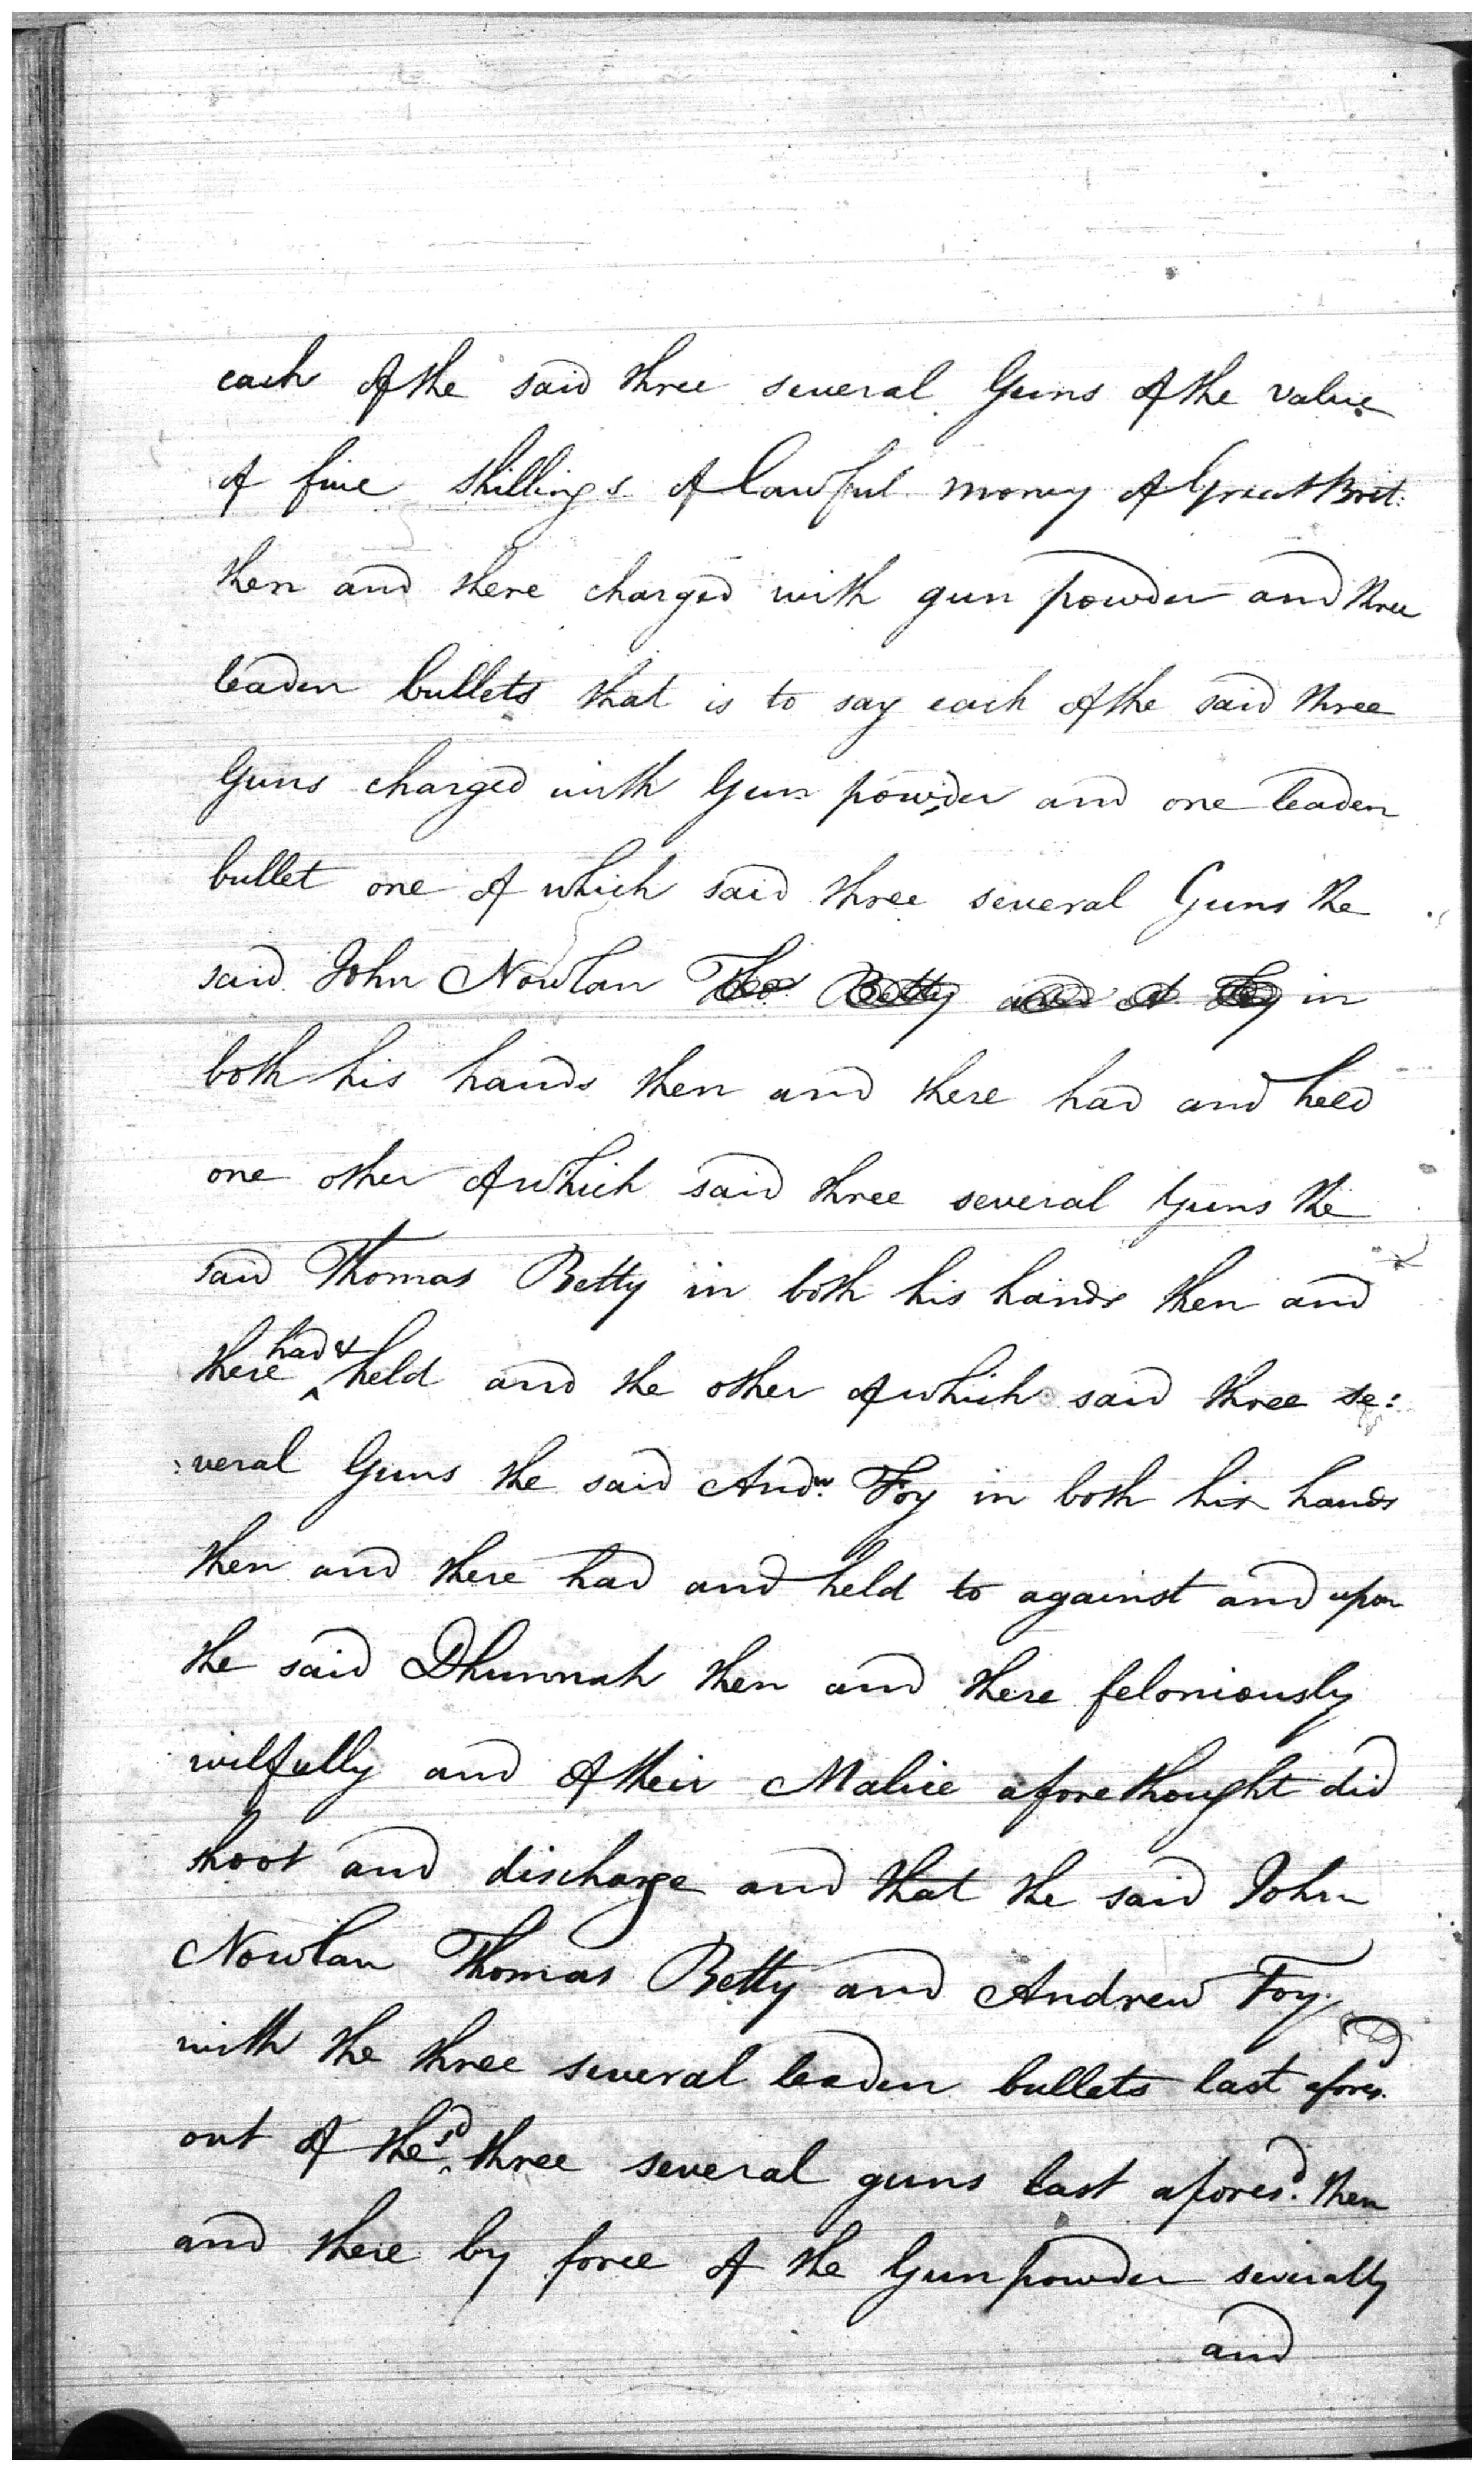 each of the said three several Guns of the value
of five shillings of lawful money of Great Brit:
then and there charged with gun powder and three
leaden bullets that is to say each of the said three
Guns charged with Gun powder and one leaden
bullet one of which said three several Guns the
said John Nowlan Thos. Betty and A. Foy in
both his hands then and there had and held
one other of which said three several Guns the
said Thomas Betty in both his hands then and
there had & held and the other of which said three se:
:veral Guns the said Andw. Foy in both his hands
then and there had and held to against and upon
the said Dhunnah then and there feloniously
wilfully and of their Malice aforethought did
shoot and discharge and that the said John
Nowlan Thomas Betty and Andrew Foy
with the three several leaden bullets last aforesd.
out of the sd three several guns last aforesd. then
and there by force of the Gunpowder severally
and